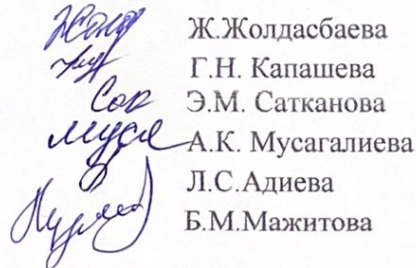 Ж.Жолдасбаева
Г.Н. Капашева
Э.М. Сатканова
А.К. Мусагалиева
Л.С.Адиева
Б.М.Мажитова